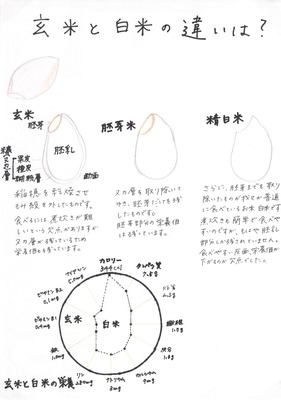 玄米と白米の違いは？
玄米
胚芽
胚乳
糠
果皮
種皮
糊粉層
胚芽米
精白米
稲穂を乾燥させ
もみ殻を外したものです。
食べるには煮炊きが難
しいという欠点がありますが
ヌカ層が残っているため
栄養価も残っています。
ヌカ層を取り除いて
ゆき、胚芽だけを残
したものです。
胚芽部分の栄養価
は残っています。
さらに、胚芽までも取り
除いたものが我々が普通
に食べているお米 白米です
煮炊きも簡単で食べや
すいのですが、もはや胚乳
部分しか残されていません。
食べやすい反面、栄養価の
下がるのが欠点でした。
カロリー
タンパク質
7.8g
玄米
白米
カルシウム
ナトリウム
リン
鉄
玄米と白米の栄養